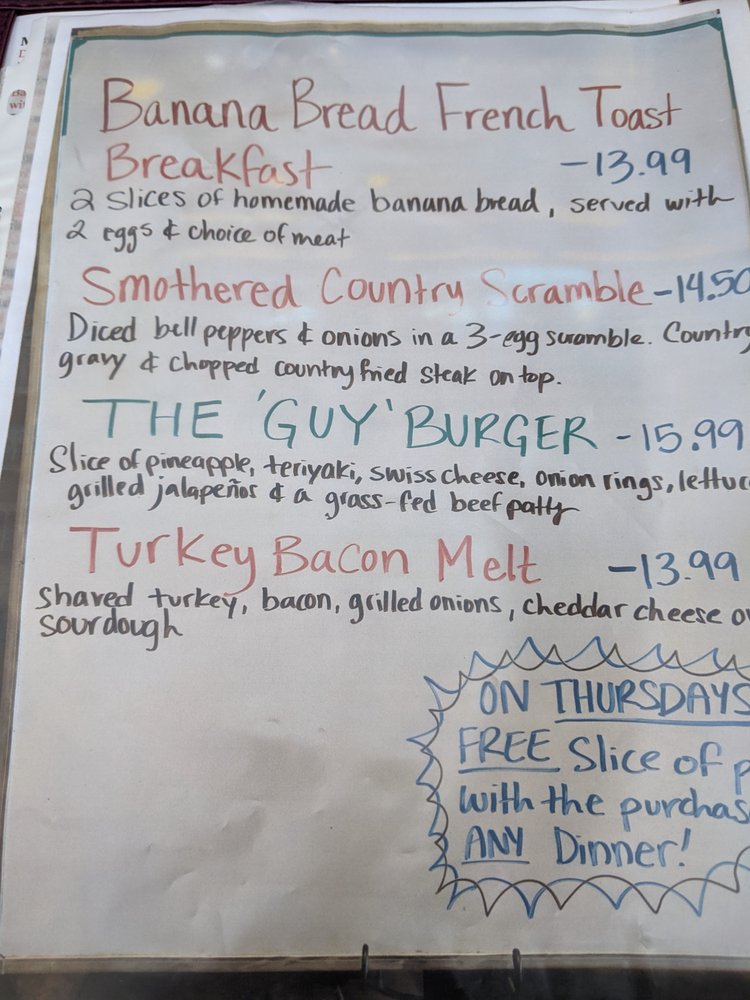 Banana Bread French Toast
Breakfast -13.99
2 slices of homemade banana bread, served with
2 eggs & choice of meat
Smothered Country Scramble -14.50
Diced bell peppers & onions in a 3-egg scramble. Country
gravy & chopped country fried steak on top.
THE 'GUY' BURGER -15.99
Slice of pineapple, teriyaki, swiss cheese, onion rings, lettuc
grilled jalapeños & a grass-fed beef patty
Turkey Bacon Melt -13.99
shaved turkey, bacon, grilled onions, cheddar cheese o
sourdough
ON THURSDAYS
FREE Slice of p
with the purchas
ANY Dinner!